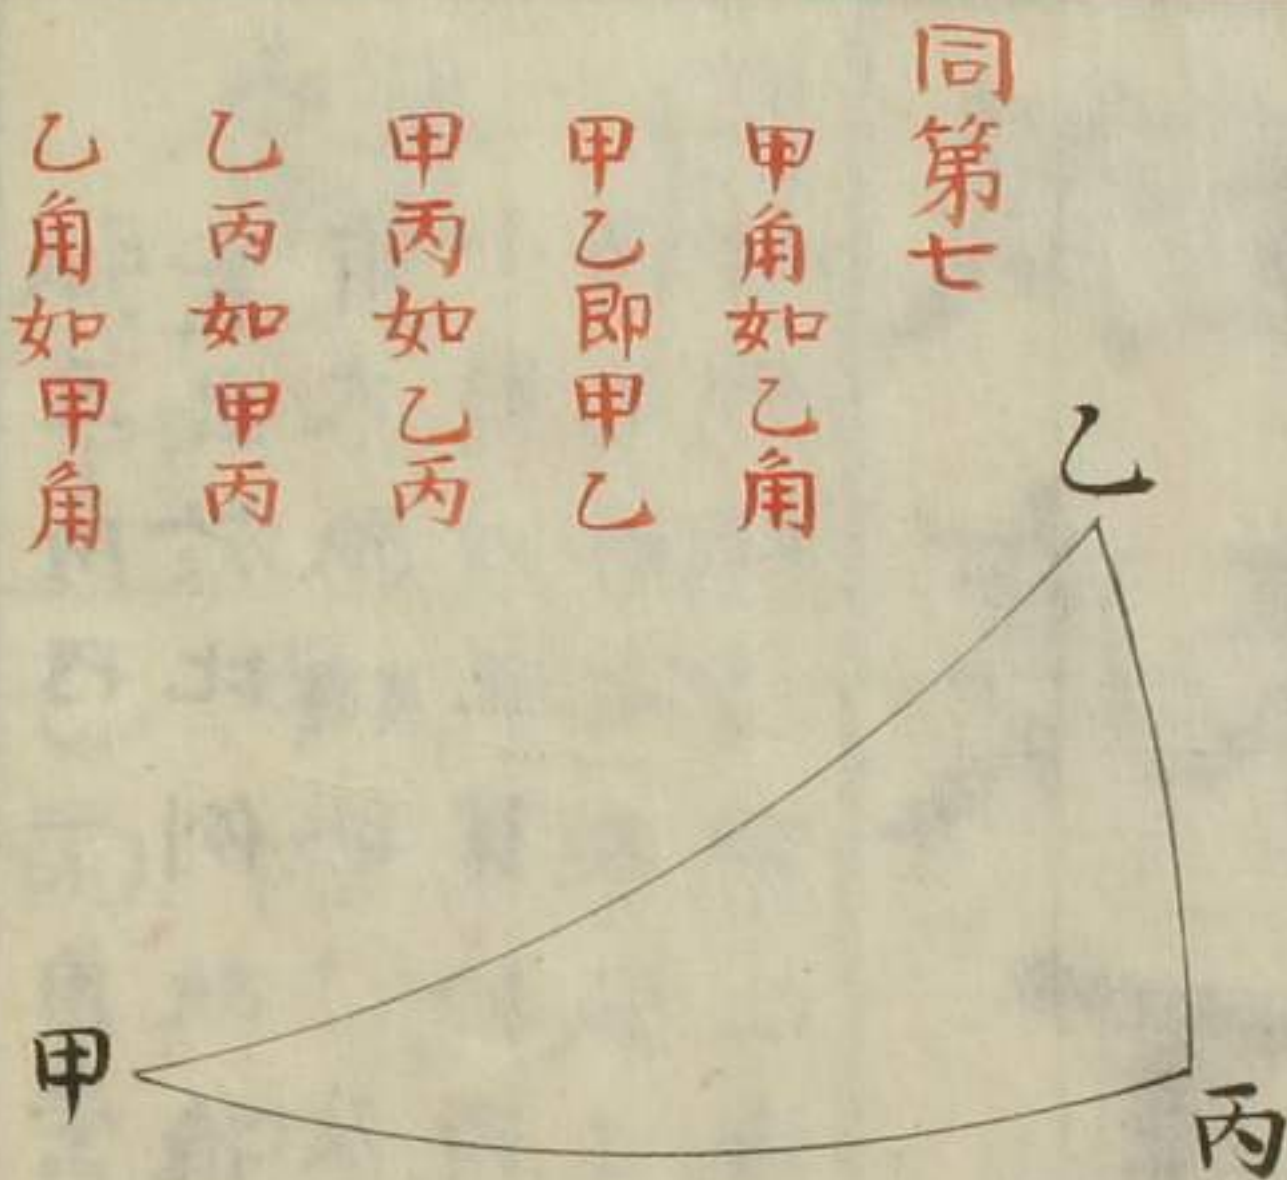 同第七
甲角如乙角
甲乙即甲乙
甲丙如乙丙
乙丙如甲丙
乙角如甲角
乙
甲
丙